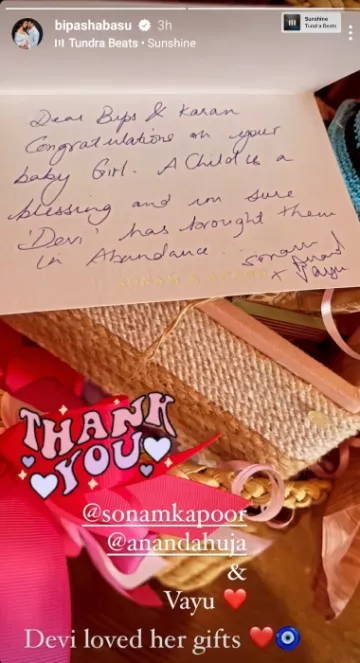 bipashabasu 3h
Tundra Beats • Sunshine
Sunshine
Tundra Beats
Dear Bips & Karan
Congratulations on your
baby Girl. A Child is a
blessing and im sure
'Devi' has brought them
in Abundance. Sonam
Anand
+ Vayu
THANK
YOU
@sonamkapoor
@anandahuja
&
Vayu ❤️
Devi loved her gifts ❤️🧿